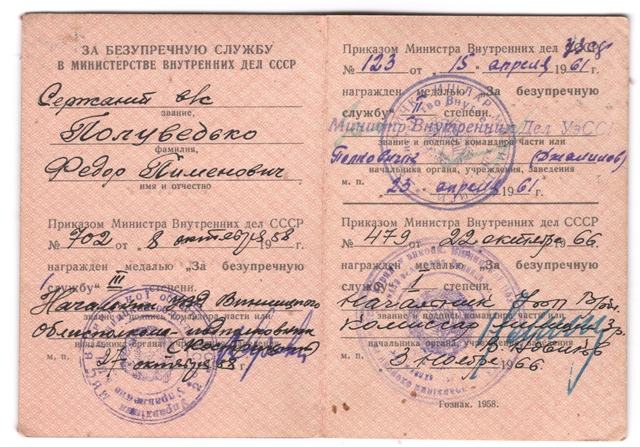 ЗА БЕЗУПРЕЧНУЮ СЛУЖБУ
В МИНИСТЕРСТВЕ ВНУТРЕННИХ ДЕЛ СССР
Сержант в/с
звание,
Полуведько
фамилия,
Федор Пименович
имя и отчество
Приказом Министра Внутренних дел СССР
№ 702 от 8 октября 1958 г.
награжден медалью „За безупречную
службу" III степени.
Начальник УВД Винницкого
звание и подпись командира части или
Облисполкома - подполковник
начальника органа, учреждения, заведения
м. п. 27 октября 58
Приказом Министра Внутренних дел
№ 123 от 15 апреля 1961 г.
награжден медалью „За безупречную
службу" II степени.
Министр Внутренних Дел УзССР
звание и подпись командира части или
Полковник
начальника органа, учреждения, заведения
м. п. 25 апреля 1961 г.
Приказом Министра Внутренних дел СССР
№ 479 от 22 октября 1966 г.
награжден медалью „За безупречную
службу" I степени.
Начальник
звание и подпись командира части или
Комиссар
начальника органа, учреждения, заведения
м. п. 3 ноября 1966 г.
Гознак. 1958.